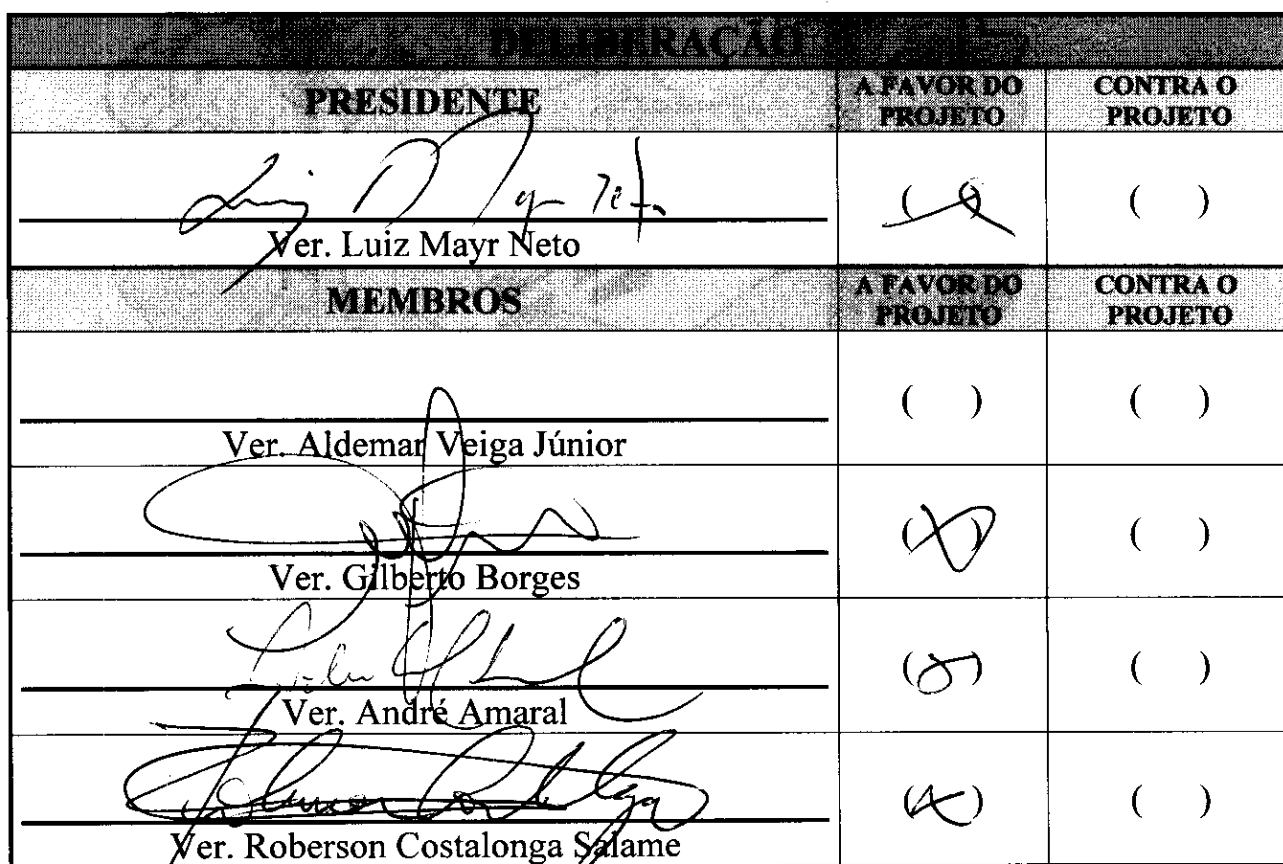 DELIBERAÇÃO
PRESIDENTE A FAVOR DO PROJETO CONTRA O PROJETO
( ) ( )
Ver. Luiz Mayr Neto
MEMBROS A FAVOR DO PROJETO CONTRA O PROJETO
( ) ( )
Ver. Aldemar Veiga Júnior
( ) ( )
Ver. Gilberto Borges
( ) ( )
Ver. André Amaral
( ) ( )
Ver. Roberson Costalonga Salame